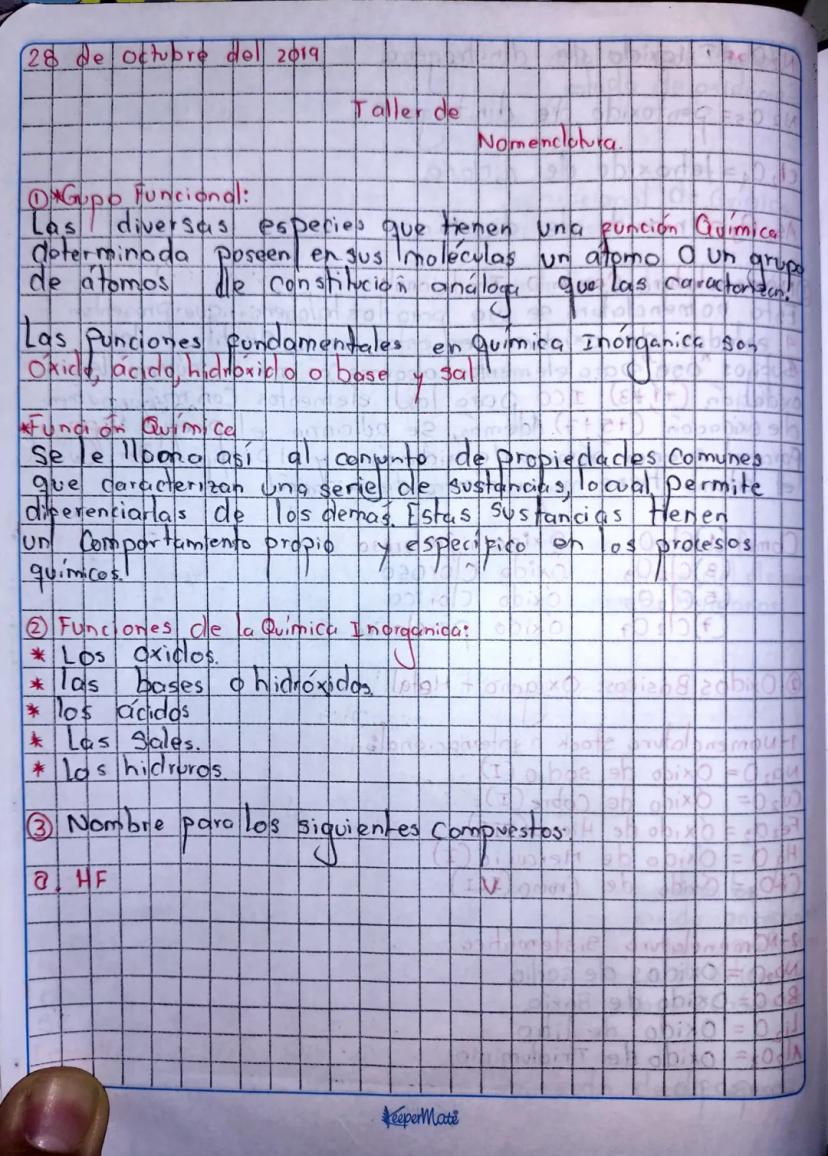 28 de octubre del 2019
Taller de
Nomenclatura.
① *Gupo Funcional:
Las diversas especies que tienen una función Química
determinada poseen en sus moléculas un átomo o un grupo
de átomos de constitución análoga que las caracterizan.
Las funciones fundamentales en química Inórganica son
óxido, ácido, hidróxido o base y sal
*Función Química
se le llama así al conjunto de propiedades comunes
que caracterizan una serie de sustancias, lo cual permite
diferenciarlas de los demas. Estas sustancias tienen
un comportamiento propio y específico en los procesos
químicos.
② Funciones de la Química Inorganica:
* Los oxidos.
* las bases o hidróxidos
* los ácidos
* Las Sales.
* Los hidruros.
③ Nombre para los siguientes compuestos.
a. HF
V.
KeeperMate